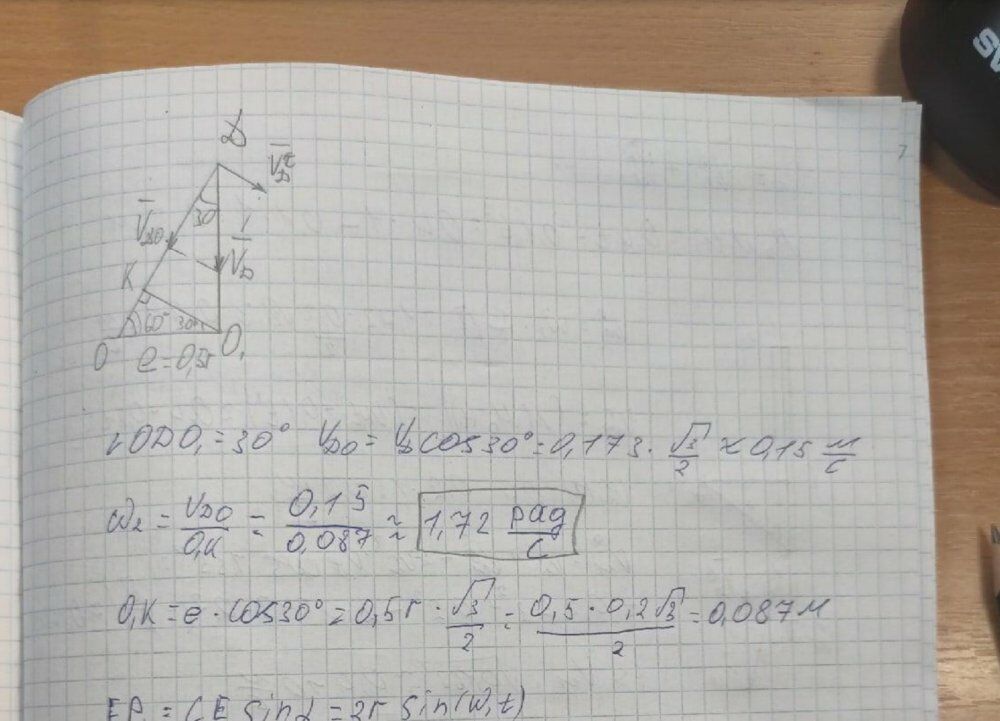 7
D
V̄_D^τ
30
V̄_DO
V̄_D
K
60° 30°
O O₁
e = 0,5r
∠ODO₁ = 30° V_DO = V_D cos30° = 0,173 · √3/2 ≈ 0,15 м/с
ω₂ = V_DO/O₁K = 0,15/0,087 ≈ 1,72 рад/с
O₁K = e · cos30° = 0,5r · √3/2 = 0,5 · 0,2√3/2 = 0,087 м
= CE sinα = 2r sin(ω₁t)